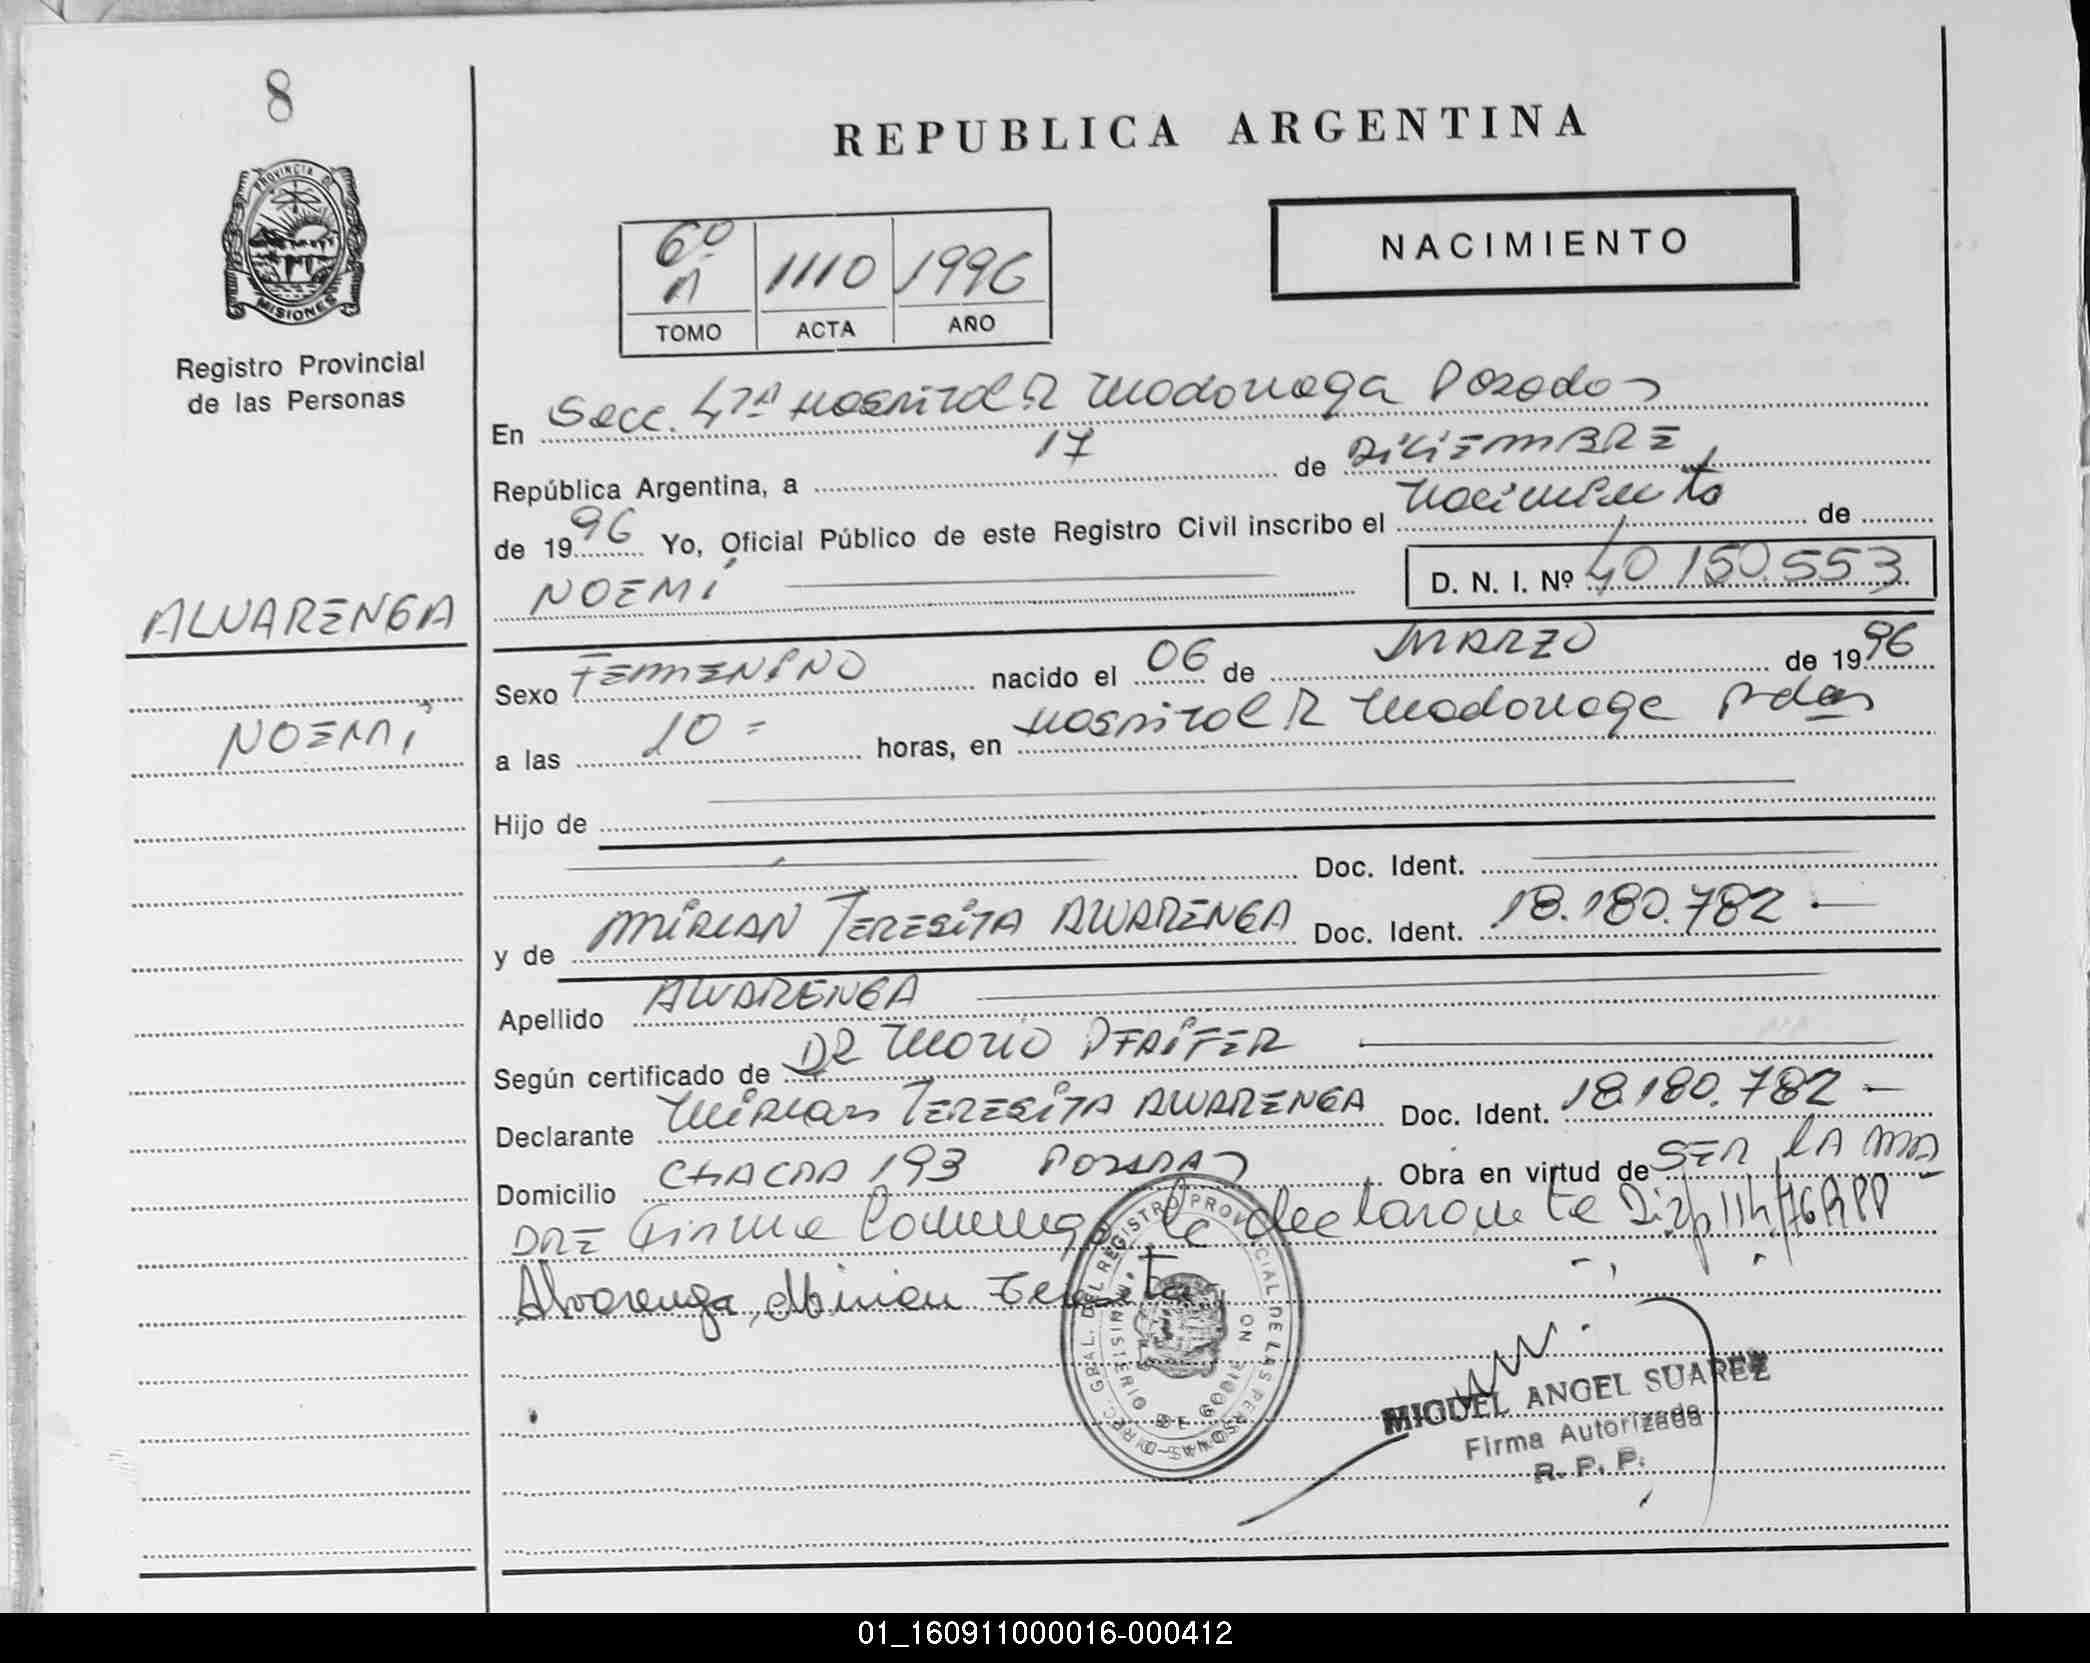 8
PROVINCIA DE
MISIONES
Registro Provincial
de las Personas
REPUBLICA ARGENTINA
NACIMIENTO
6º 1110 1996
TOMO ACTA AÑO
En Secc. 4ta Hospital R Madariaga Posadas
República Argentina, a 17 de DICIEMBRE
de 1996 Yo, Oficial Público de este Registro Civil inscribo el nacimiento de
NOEMÍ D. N. I. Nº 40 150.553
ALVARENGA
NOEMÍ
Sexo FEMENINO nacido el 06 de MARZO de 1996
a las 10= horas, en Hospital R Madariaga Pdas
Hijo de
Doc. Ident.
y de MIRIAN TERESITA ALVARENGA Doc. Ident. 18.180.782
Apellido ALVARENGA
Según certificado de DR Mario PFAIFER
Declarante MIRIAN TERESITA ALVARENGA Doc. Ident. 18.180.782
Domicilio CHACRA 193 POSADAS Obra en virtud de SER LA MA
DRE Firma conmigo la declarante Disp 114/76 RPP
Alvarenga, Mirian Teresita
DIREC. GRAL. DEL REGISTRO PROVINCIAL DE LAS PERSONAS
MIGUEL ANGEL SUAREZ
Firma Autorizada
R. P. P.
01_160911000016-000412